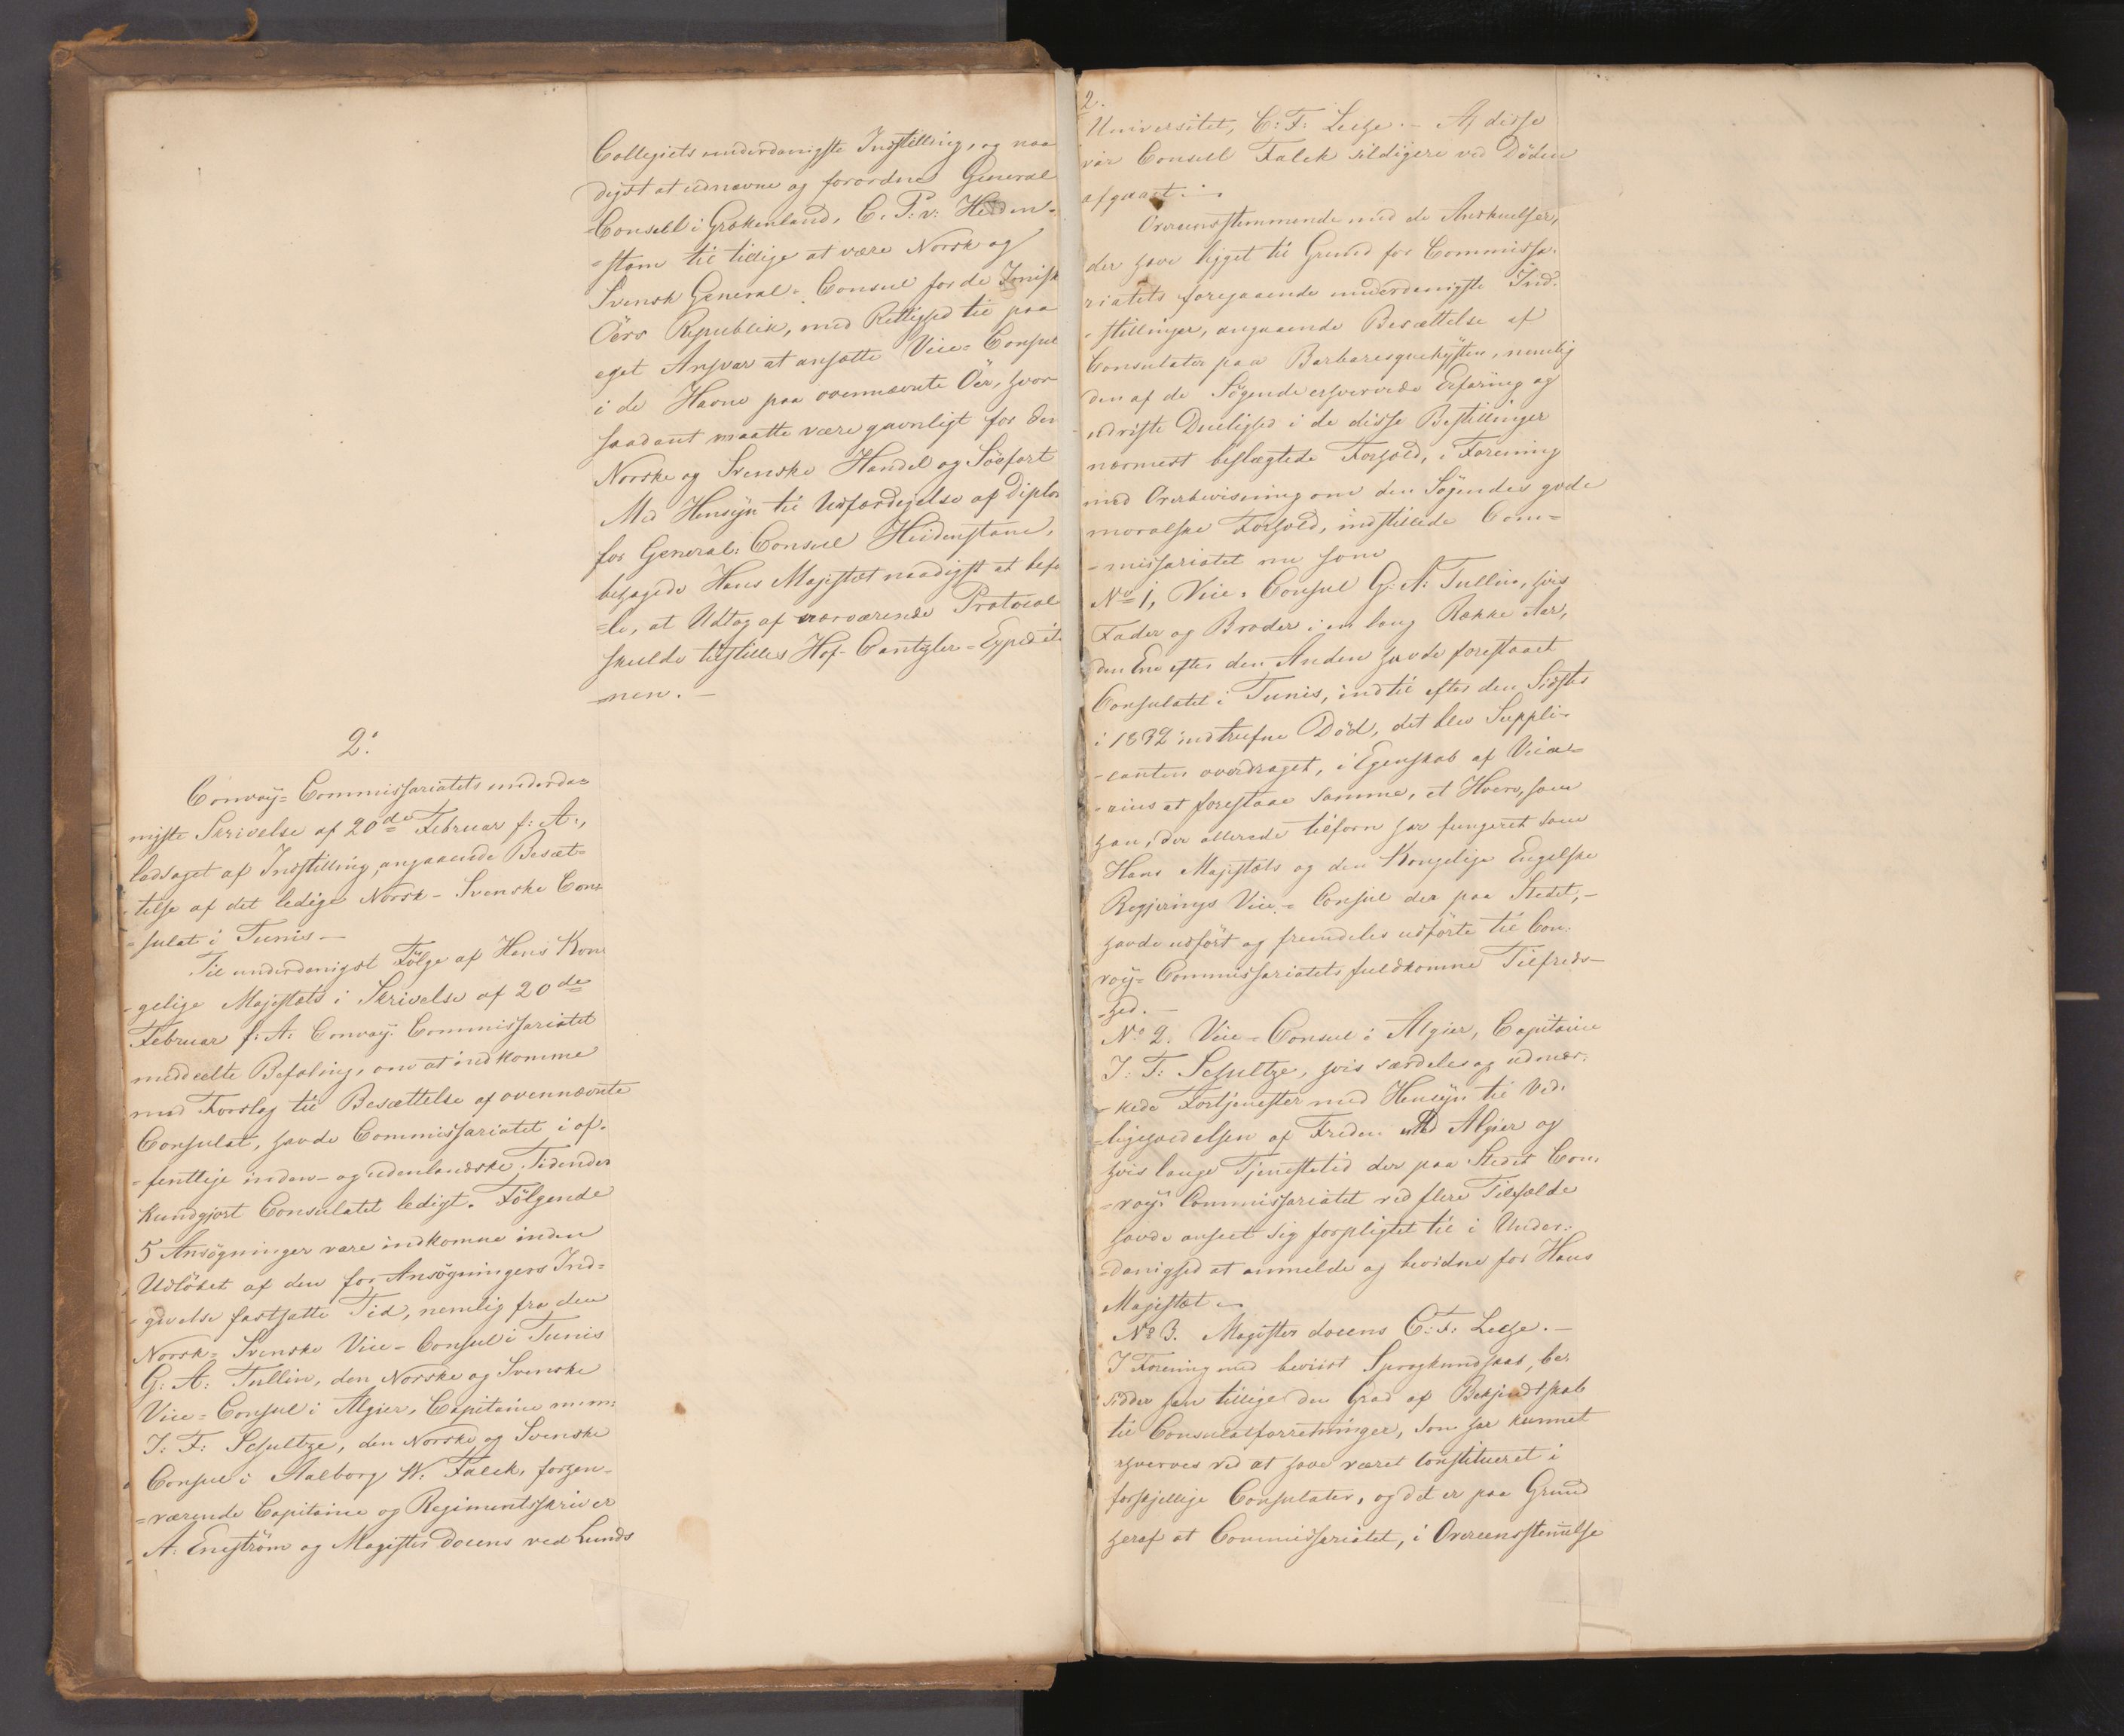 Collegiets underdanigste Indstilling, og naa
digst at udnævne og forordne General
-Consul i Grækenland, C. P. v: Heiden-
-stam til tillige at være Norsk og
Svensk General-Consul for de Jonisk
Öers Republik, med Rettighed til paa
eget Ansvar at ansætte Vice-Consul
i de Havne paa ovennævnte Öer, hvor
saadant maatte være gavnligt for den
Norske og Svenske Handel og Söefart
Med Hensyn til Udfærdigelse af Diplo
for General-Consul Heidenstam,
behagede Hans Majestæt naadigst at befa
-le, at Udtog af nærværende Protocol
skulde tilstilles Hof-Cantzler-Expeditio
-nen. -
2.
Convoy-Commissariatets underda-
nigste Skrivelse af 20de Februar f: A.,
ledsaget af Indstilling, angaaende Besæt-
-telse af det ledige Norsk-Svenske Con-
-sulat i Tunis -
Til underdanigst Fölge af Hans Kon
-gelige Majestæts i Skrivelse af 20de
Februar f: A: Convoy-Commissariatet
meddeelte Befaling, om at indkomme
med Forslag til Besættelse af ovennævnte
Consulat, havde Commissariatet i of-
-fentlige inden- og udenlandske Tidender
kundgjort Consulatet ledigt. Fölgende
5 Ansögninger vare indkomne inden
Udlöbet af den for Ansögningers Ind-
-givelse fastsatte Tid, nemlig fra den
Norsk-Svenske Vice-Consul i Tunis
G: A: Tullin, den Norske og Svenske
Vice-Consul i Algier, Capitaine m: m:
J: F: Schultze, den Norske og Svenske
Consul i Aalborg W. Falck, forhen-
-værende Capitaine og Regimentsskriver
A. Eneström og Magister docens ved Lunds
2.
Universitet, C: F: Lesze. - Af disse
var Consul Falck sildigere ved Döden
afgaaet. -
Overeensstemmende med de Anskuelser,
der have ligget til Grund for Commissa-
riatets foregaaende underdanigste Ind-
-stillinger, angaaende Besættelse af
Consulater paa Barbaresquekysten, nemlig
den af de Sögende erhvervede Erfaring og
udviste Duelighed i de disse Bestillinger
nærmest beslægtede Forhold, i Forening
med Overbeviisning om den Sögendes gode
moralske Forhold, indstillede Com-
-missariatet nu som
No 1, Vice-Consul G: A: Tullin, hvis
Fader og Broder i en lang Række Aar,
den Ene efter den Anden havde forestaaet
Consulatet i Tunis, indtil efter den Sidstes
i 1832 indtrufne Död, det blev Suppli-
-canten overdraget, i Egenskab af Vica-
-rius at forestaae samme, et Hverv, som
han, der allerede tilforn har fungeret som
Hans Majestæts og den Kongelige Engelske
Regjerings Vice-Consul der paa Stedet, -
havde udfört og fremdeles udförte til Con-
voy-Commissariatets fuldkomne Tilfreds-
-hed. -
No 2. Vice-Consul i Algier, Capitaine
J: F: Schultze, hvis særdeles og udmær-
-kede Fortjenester med Hensyn til Ved-
-ligeholdelsen af Freden med Algier og
hvis lange Tjenestetid der paa Stedet Con-
-voy-Commissariatet ved flere Tilfælde
havde anseet sig forpligtet til i Under-
-danighed at anmelde og bevidne for Hans
Majestæt -
No 3. Magister docens C: F: Lesze. -
I Forening med beviist Sprogkundskab, be-
sidder han tillige den Grad af Bekjendtskab
til Consulatforretninger, som har kunnet
erhverves ved at have været constitueret i
forskjellige Consulater, og det er paa Grund
heraf at Commissariatet, i Overeensstemmelse